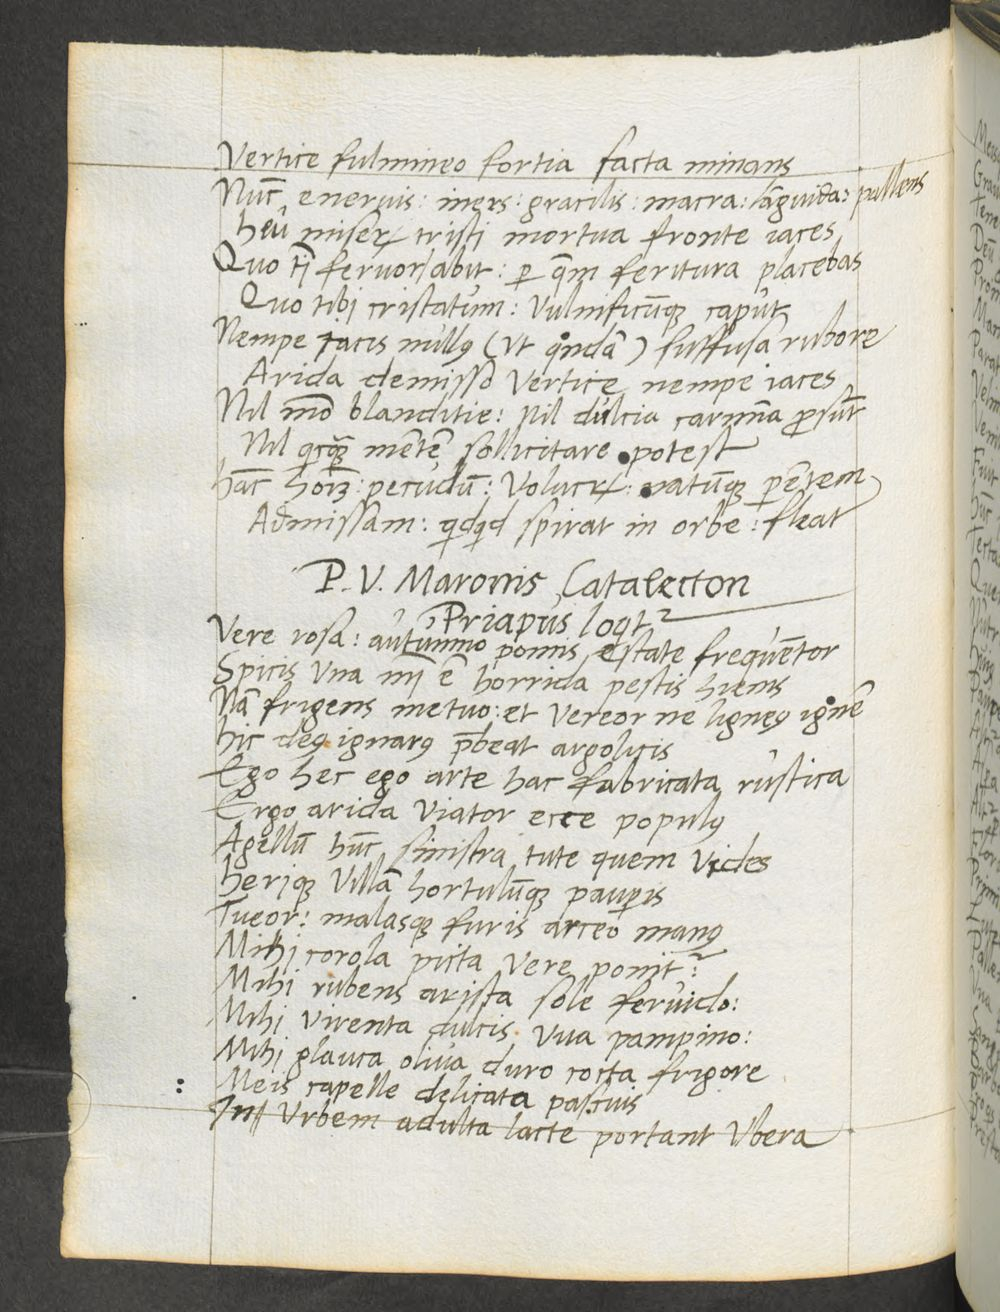 Vertice fulmineo fortia facta minans
Nūc eneruis: iners: gracilis: macra: lāguida: pallens
heu miserꝝ tristi mortua fronte iaces
Quo tī feruor abit: ꝑ quē feritura placebas
Quo tibi cristatum: Vulnificūqꝫ caput
Nempe iacis nullꝰ (Vt quondā) suffusa rubore
Arida demisso Vertice nempe iaces
Nil mō blanditie: Nil dulcia carmīa ꝓsūt
Nil quicquā mētē sollicitare potest
hāc hoīꝫ: pecudū: Volucrꝝ: natūqꝫ parētem
Admissam: quidquid spirat in orbe: fleat
P. V. Maronis Catalecton
Priapus loqtꝰ
Vere rosa: autumno pomis estate frequētor
Spicis Vna mī ē horrida pestis hiems
Nā frigens metuo: et Vereor ne ligneꝰ ignē
hic deꝰ ignarꝰ p̄beat argolicis
Ego hec ego arte hac fabricata rustica
Ergo arida Viator ecce populꝰ
Agellū hūc sinistra tute quem Vides
heriqꝫ Villā hortulūqꝫ pauꝑis
Tueor: malasqꝫ furis arceo manꝰ
Mihi corola picta Vere ponit᷑:
Mihi rubens arista sole feruido:
Mihi Virenta dulcis Vua pampino:
Mihi glauca oliua duro cocta frigore
Meis capelle delicata pascuis
In Vrbem adulta lacte portant Vbera